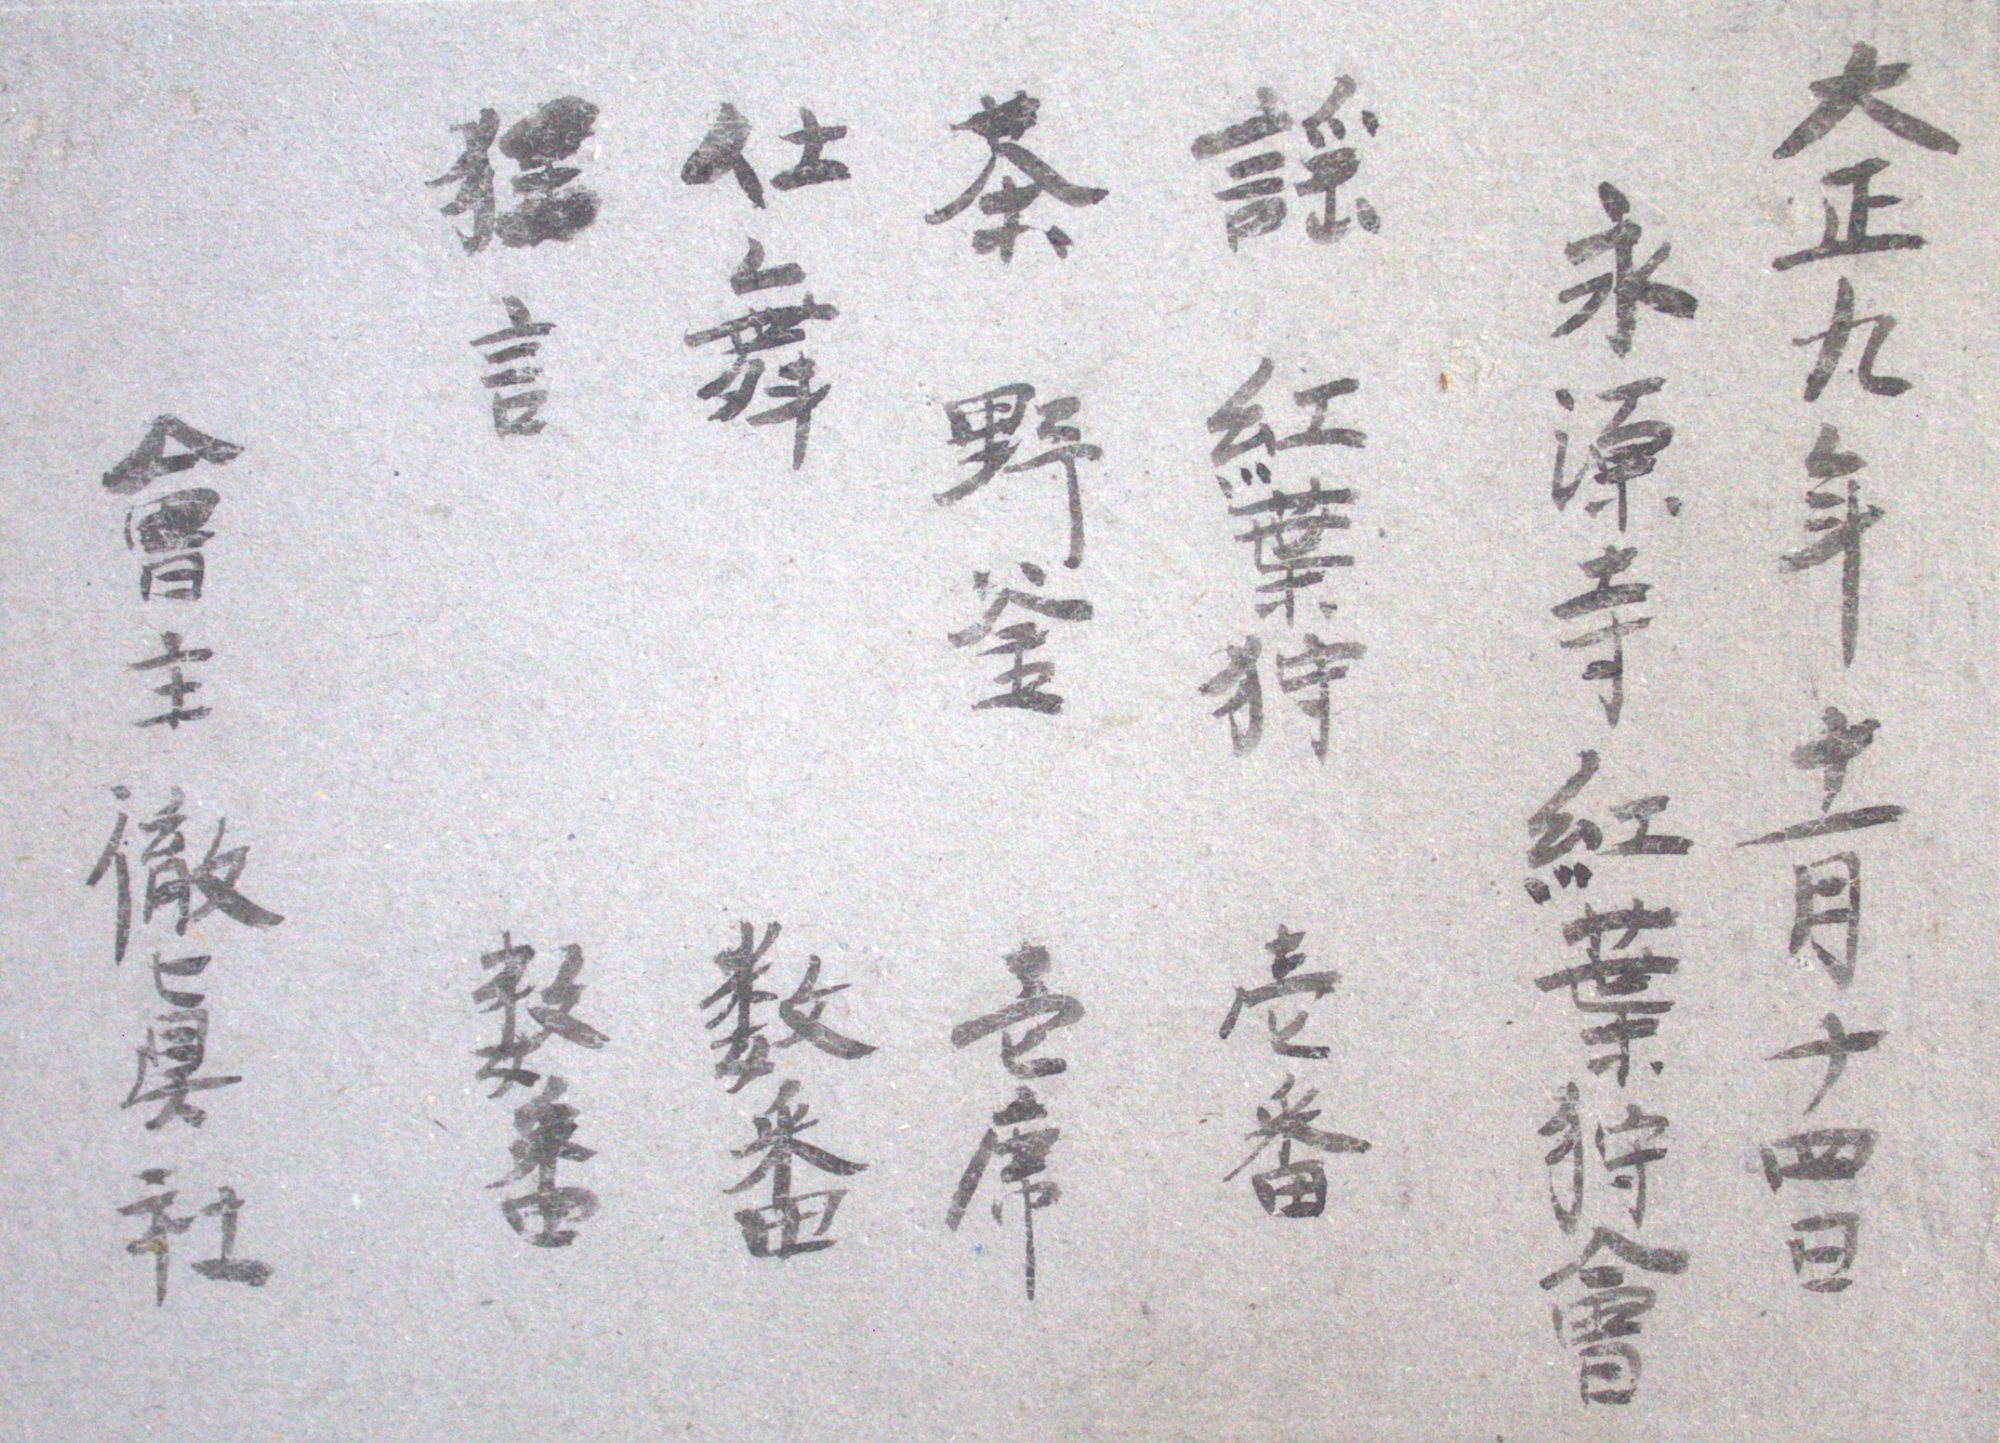 大正九年十一月十四日
永源寺紅葉狩會
謡 紅葉狩 壱番
茶 野釜 壱席
仕舞 数番
狂言 数番
會主 徹眞社